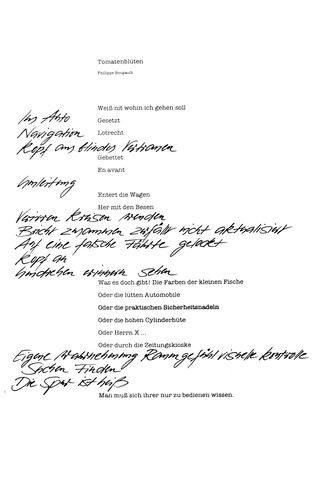 Tomatenblüten
Philippe Soupault
Weiß nit wohin ich gehen soll
Ins Auto
Gesetzt
Navigation
Lotrecht
Kopf aus blindes Vertrauen
Gebettet
En avant
Umleitung
Entert die Wagen
Her mit den Besen
Verirren Kreisen wenden
Bricht zusammen zufällt nicht aktualisiert
Auf eine falsche Fährte gelockt
Kopf an
Umdrehen erinnern sehen
Was es doch gibt! Die Farben der kleinen Fische
Oder die lütten Automobile
Oder die praktischen Sicherheitsnadeln
Oder die hohen Cylinderhüte
Oder Herrn X ...
Oder durch die Zeitungskioske
Eigene Wahrnehmung Raumgefühl visuelle Kontrolle
Suchen Finden
Die Spur ist heiß
Man muß sich ihrer nur zu bedienen wissen.